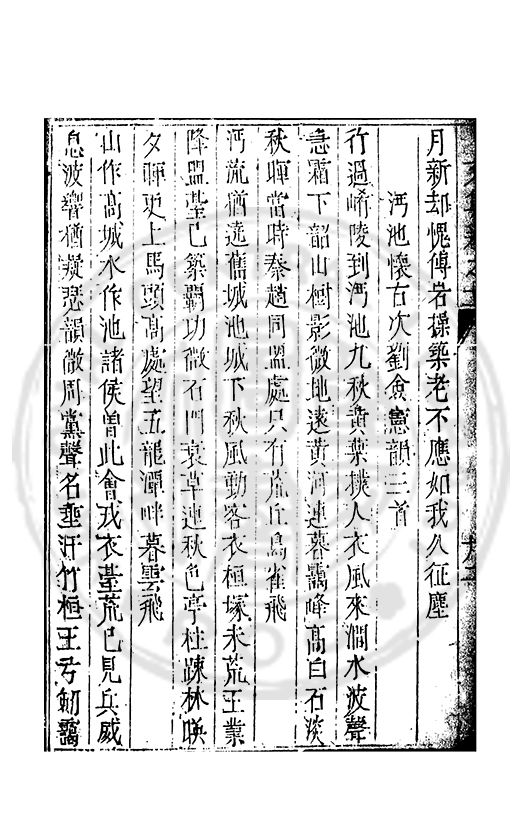 月新却愧傅岩操築老不應如我久征塵
沔池懷古次劉僉憲韻三首
行過崤陵到沔池九秋黄葉撲人衣風來澗水波聲
急霜下韶山樹影微地遠黄河連暮靄峰高白石淡
秋暉當時秦趙同盟處只有荒丘鳥雀飛
沔流猶遶舊城池城下秋風動客衣桓塚未荒王業
降盟臺已築霸功微石門衰草連秋色亭柱疎林映
夕暉更上馬頭高處望五龍潭畔暮雲飛
山作高城水作池諸侯曽此會戎衣臺荒已見兵威
息波響猶凝瑟韻微周黨聲名垂汗竹桓王弓劒靄